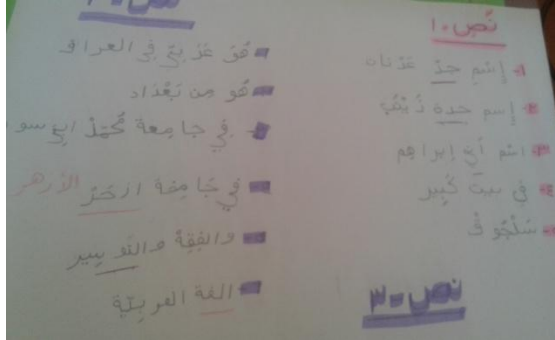 نَص ١٠
إِسْمِ جدّ عَدْنان
إِسم جدة زَيْنَب
اسْم أبي إبراهيم
في بيت كَبير
سَلْجُو ق
نص -٢
هُوَ عَرَبيّ في العراق
هُو مِن بَغْدَاد
في جامعة مُحَمَدْ ابي سو
في جَامِعَة ازحَرْ الأزهر
والفِقْهْ والتَّو سِير
الغة العَربيّة
نص -٣